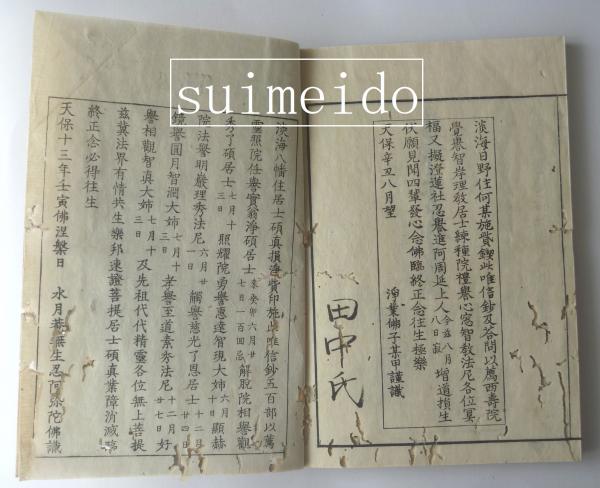 suimeido
淡海日野住何某施貲鋟此唯信鈔及答問以薦西壽院
覺譽智岸理敎居士練種院禮譽心窓智教法尼各位冥
福又擬澄蓮社忍譽進阿周延上人今玆八月八日寂増道損生
伏願見聞四輩發心念佛臨終正念往生極樂
天保辛丑八月望
淨業佛子某甲謹識
田中氏
淡海八幡住居士碩真損淨貲印施此唯信鈔五百部以薦
靈照院任譽實翁淨碩居士癸卯六月廿七日一百回忌解脫院相譽觀
秀了碩居士七月十三日照耀院勇譽惠達智現大姉六月三日顯赫
院法譽明嚴理秀法尼六月廿一日觸譽慈光了恩居士十二月廿四日
鏡譽圓月智潤大姉七月十三日孝譽至道素夯法尼十二月廿七日好
譽相觀智真大姉三月十日及先祖代代精靈各位無上菩提
玆冀法界有情共生樂邦速證菩提居士碩真業障消滅臨
終正念必得往生
天保十三年壬寅佛涅槃日
水月菴無生忍阿弥陀佛識